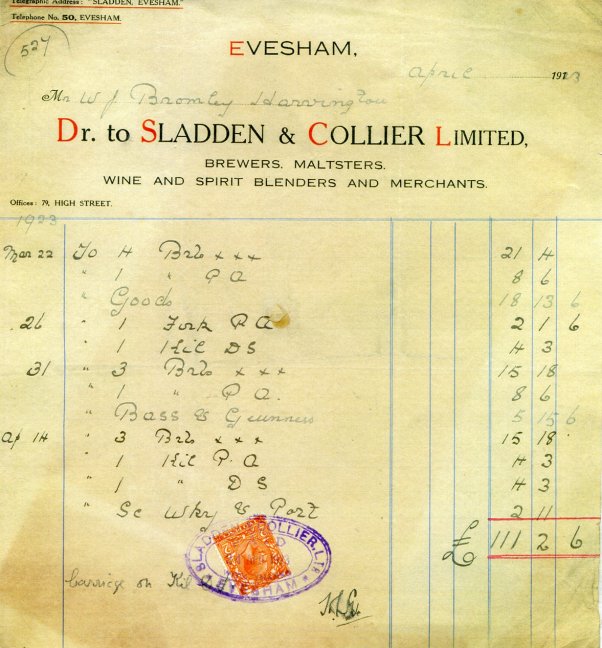 Telegraphic Address: "SLADDEN, EVESHAM."
Telephone No. 50, EVESHAM.
527
EVESHAM,
April 191
Mr W J Bromley Harvington
Dr. to SLADDEN & COLLIER LIMITED,
BREWERS, MALTSTERS.
WINE AND SPIRIT BLENDERS AND MERCHANTS.
Offices: 79, HIGH STREET.
1923
Mar 22 To 4 Brls xxx 21 4
" 1 " P A 8 6
" Goods 18 13 6
26 " 1 P A 2 1 6
" 1 Kil D S 4 3
31 " 3 Brls xxx 15 18
" 1 " P A. 8 6
" Bass & Guinness 5 15 6
Ap 14 " 3 Brls xxx 15 18
" 1 Kil P. A 4 3
" 1 " D S 4 3
" Sc Wky & Port 2 11
£ 111 2 6
SLADDEN & COLLIER, LTD
EVESHAM
Carriage on Kil